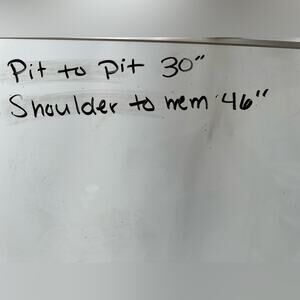 Pit to pit 30"
Shoulder to hem 46"